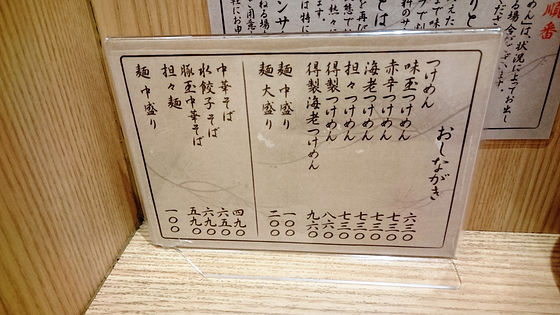 おしながき
つけめん 六三〇
味玉つけめん 七三〇
赤辛つけめん 七三〇
海老つけめん 七三〇
担々つけめん 七三〇
得製つけめん 八六〇
得製海老つけめん 九六〇
麺中盛り 一〇〇
麺大盛り 二〇〇
中華そば 四九〇
水餃子そば 六五〇
豚玉中華そば 六九〇
担々麺 五九〇
麺中盛り 一〇〇
順番
めんは、状況によってお出し
る場合がございます。